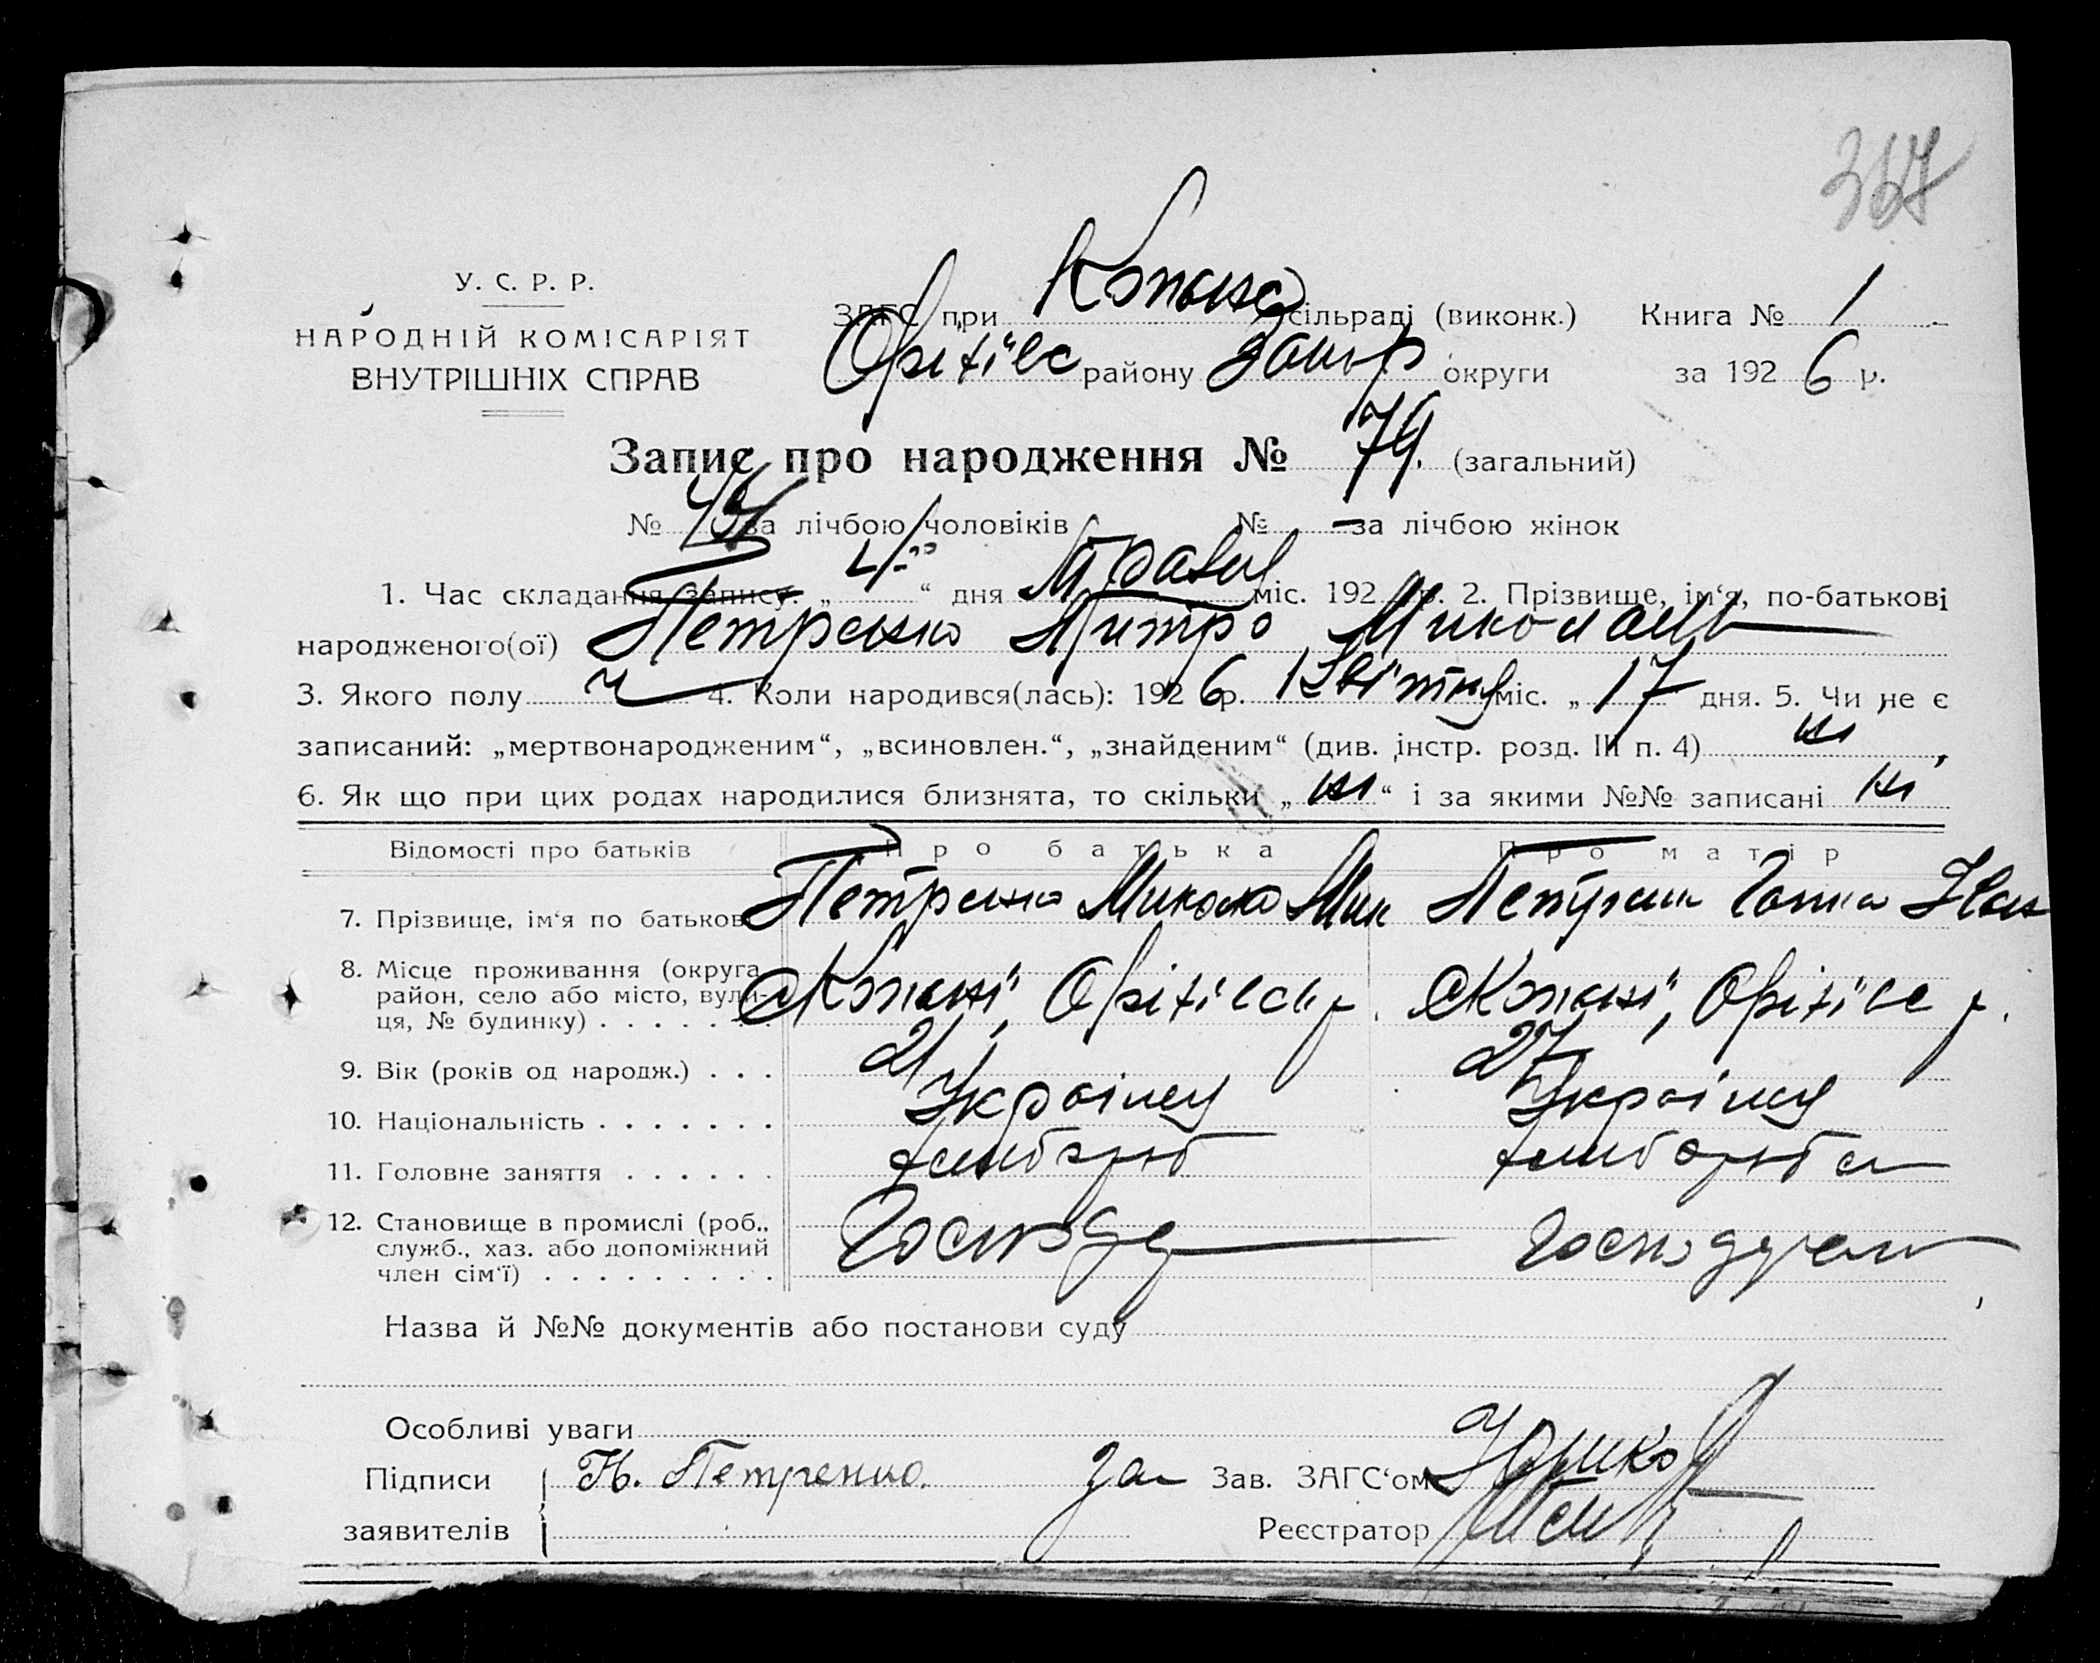 367
У. С. Р. Р.
НАРОДНІЙ КОМІСАРІЯТ
ВНУТРІШНІХ СПРАВ
ЗАГС при Копанс сільраді (виконк.) Книга № 1
Оріхівс району Запор округи за 1926 р.
Запис про народження № 79. (загальний)
№ за лічбою чоловіків № — за лічбою жінок
1. Час складання запису: „4“ дня Травня міс. 192 р. 2. Прізвище, ім‘я, по-батькові
народженого(ої) Петренко Митро Миколаїв
3. Якого полу ч 4. Коли народився(лась): 1926 р. Квітня міс. „17 дня. 5. Чи не є
записаний: „мертвонародженим“, „всиновлен.“, „знайденим“ (див. інстр. розд. III п. 4) ні
6. Як що при цих родах народилися близнята, то скільки „ні“ і за якими №№ записані ні
Відомості про батьків Про батька Про матір
7. Прізвище, ім‘я по батькові Петренко Микола Мик Петренко Ганна Іван
8. Місце проживання (округа, район, село або місто, вулиця, № будинку) . . . . . . . с Копані, Оріхівськ р. с Копані, Оріхівс р.
9. Вік (років од народж.) . . . 21 27
10. Національність . . . . . . . Українец Украінец
11. Головне заняття . . . . . . хлибороб хлибороб
12. Становище в промислі (роб., служб., хаз. або допоміжний член сім‘ї) . . . . . . . . . Господ
Назва й №№ документів або постанови суду
Особливі уваги
Підписи Н. Петренко. За Зав. ЗАГС‘ом
заявителів Реєстратор